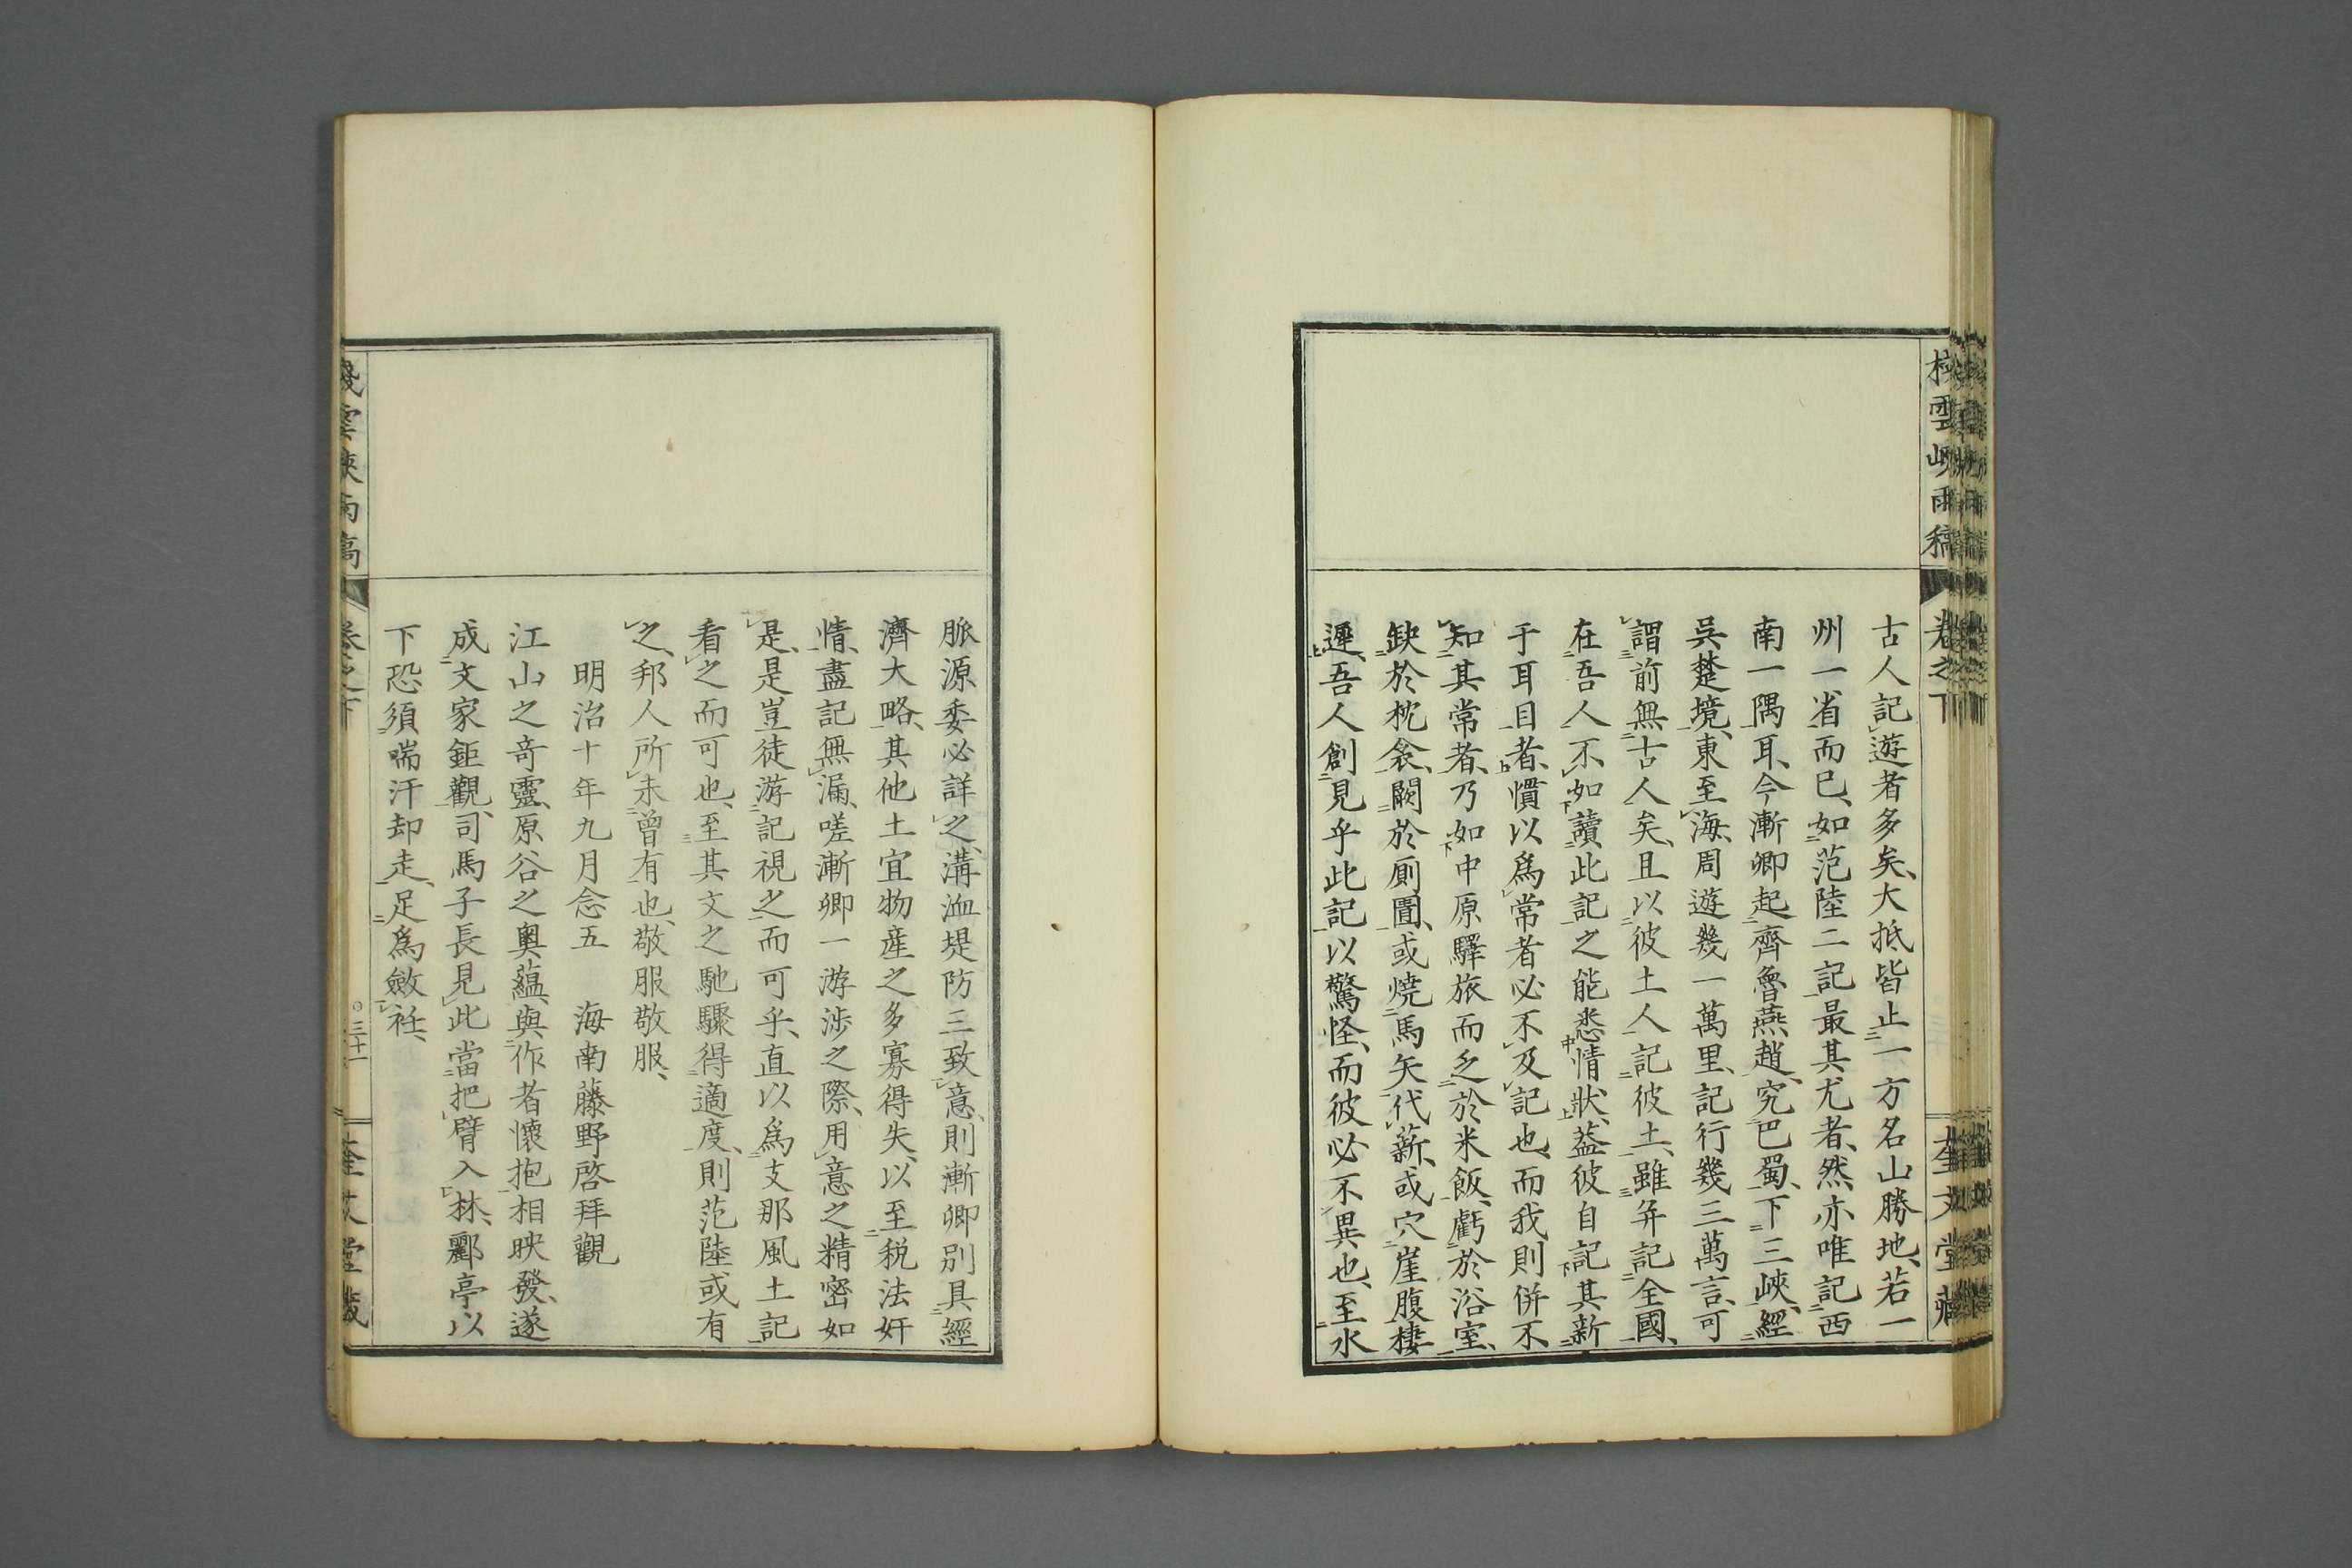 古人記遊者多矣、大抵皆止一方名山勝地、若一
州一省而已、如范陸二記最其尤者、然亦唯記西
南一隅耳、今漸卿起齊魯燕趙、究巴蜀、下三峽、經
吳楚境、東至海、周遊幾一萬里、記行幾三萬言、可
謂前無古人矣、且以彼土人記彼土、雖并記全國、
在吾人不如讀此記之能悉情狀、蓋彼自記其新
于耳目者、慣以爲常者必不及記也、而我則併不
知其常者、乃如中原驛旅而乏於米飯、虧於浴室、
缺於枕衾、闕於厠圊、或燒馬矢代薪、或穴崖腹棲
遲、吾人創見乎此記以驚怪、而彼必不異也、至水
脈源委必詳之、溝洫堤防三致意、則漸卿別具經
濟大略、其他土宜物産之多寡得失、以至税法奸
情、盡記無漏、嗟漸卿一游涉之際、用意之精密如
是、是豈徒游記視之而可乎、直以爲支那風土記
看之而可也、至其文之馳驟得適度、則范陸或有
之、邦人所未曾有也、敬服敬服、
明治十年九月念五　海南藤野啓拜觀
江山之奇靈、原谷之奧蘊、與作者懷抱相映發、遂
成文家鉅觀、司馬子長見此當把臂入林、酈亭以
下恐須喘汗却走、足爲斂衽、
棧雲峽雨稿
卷之下
三十一
奎文堂藏